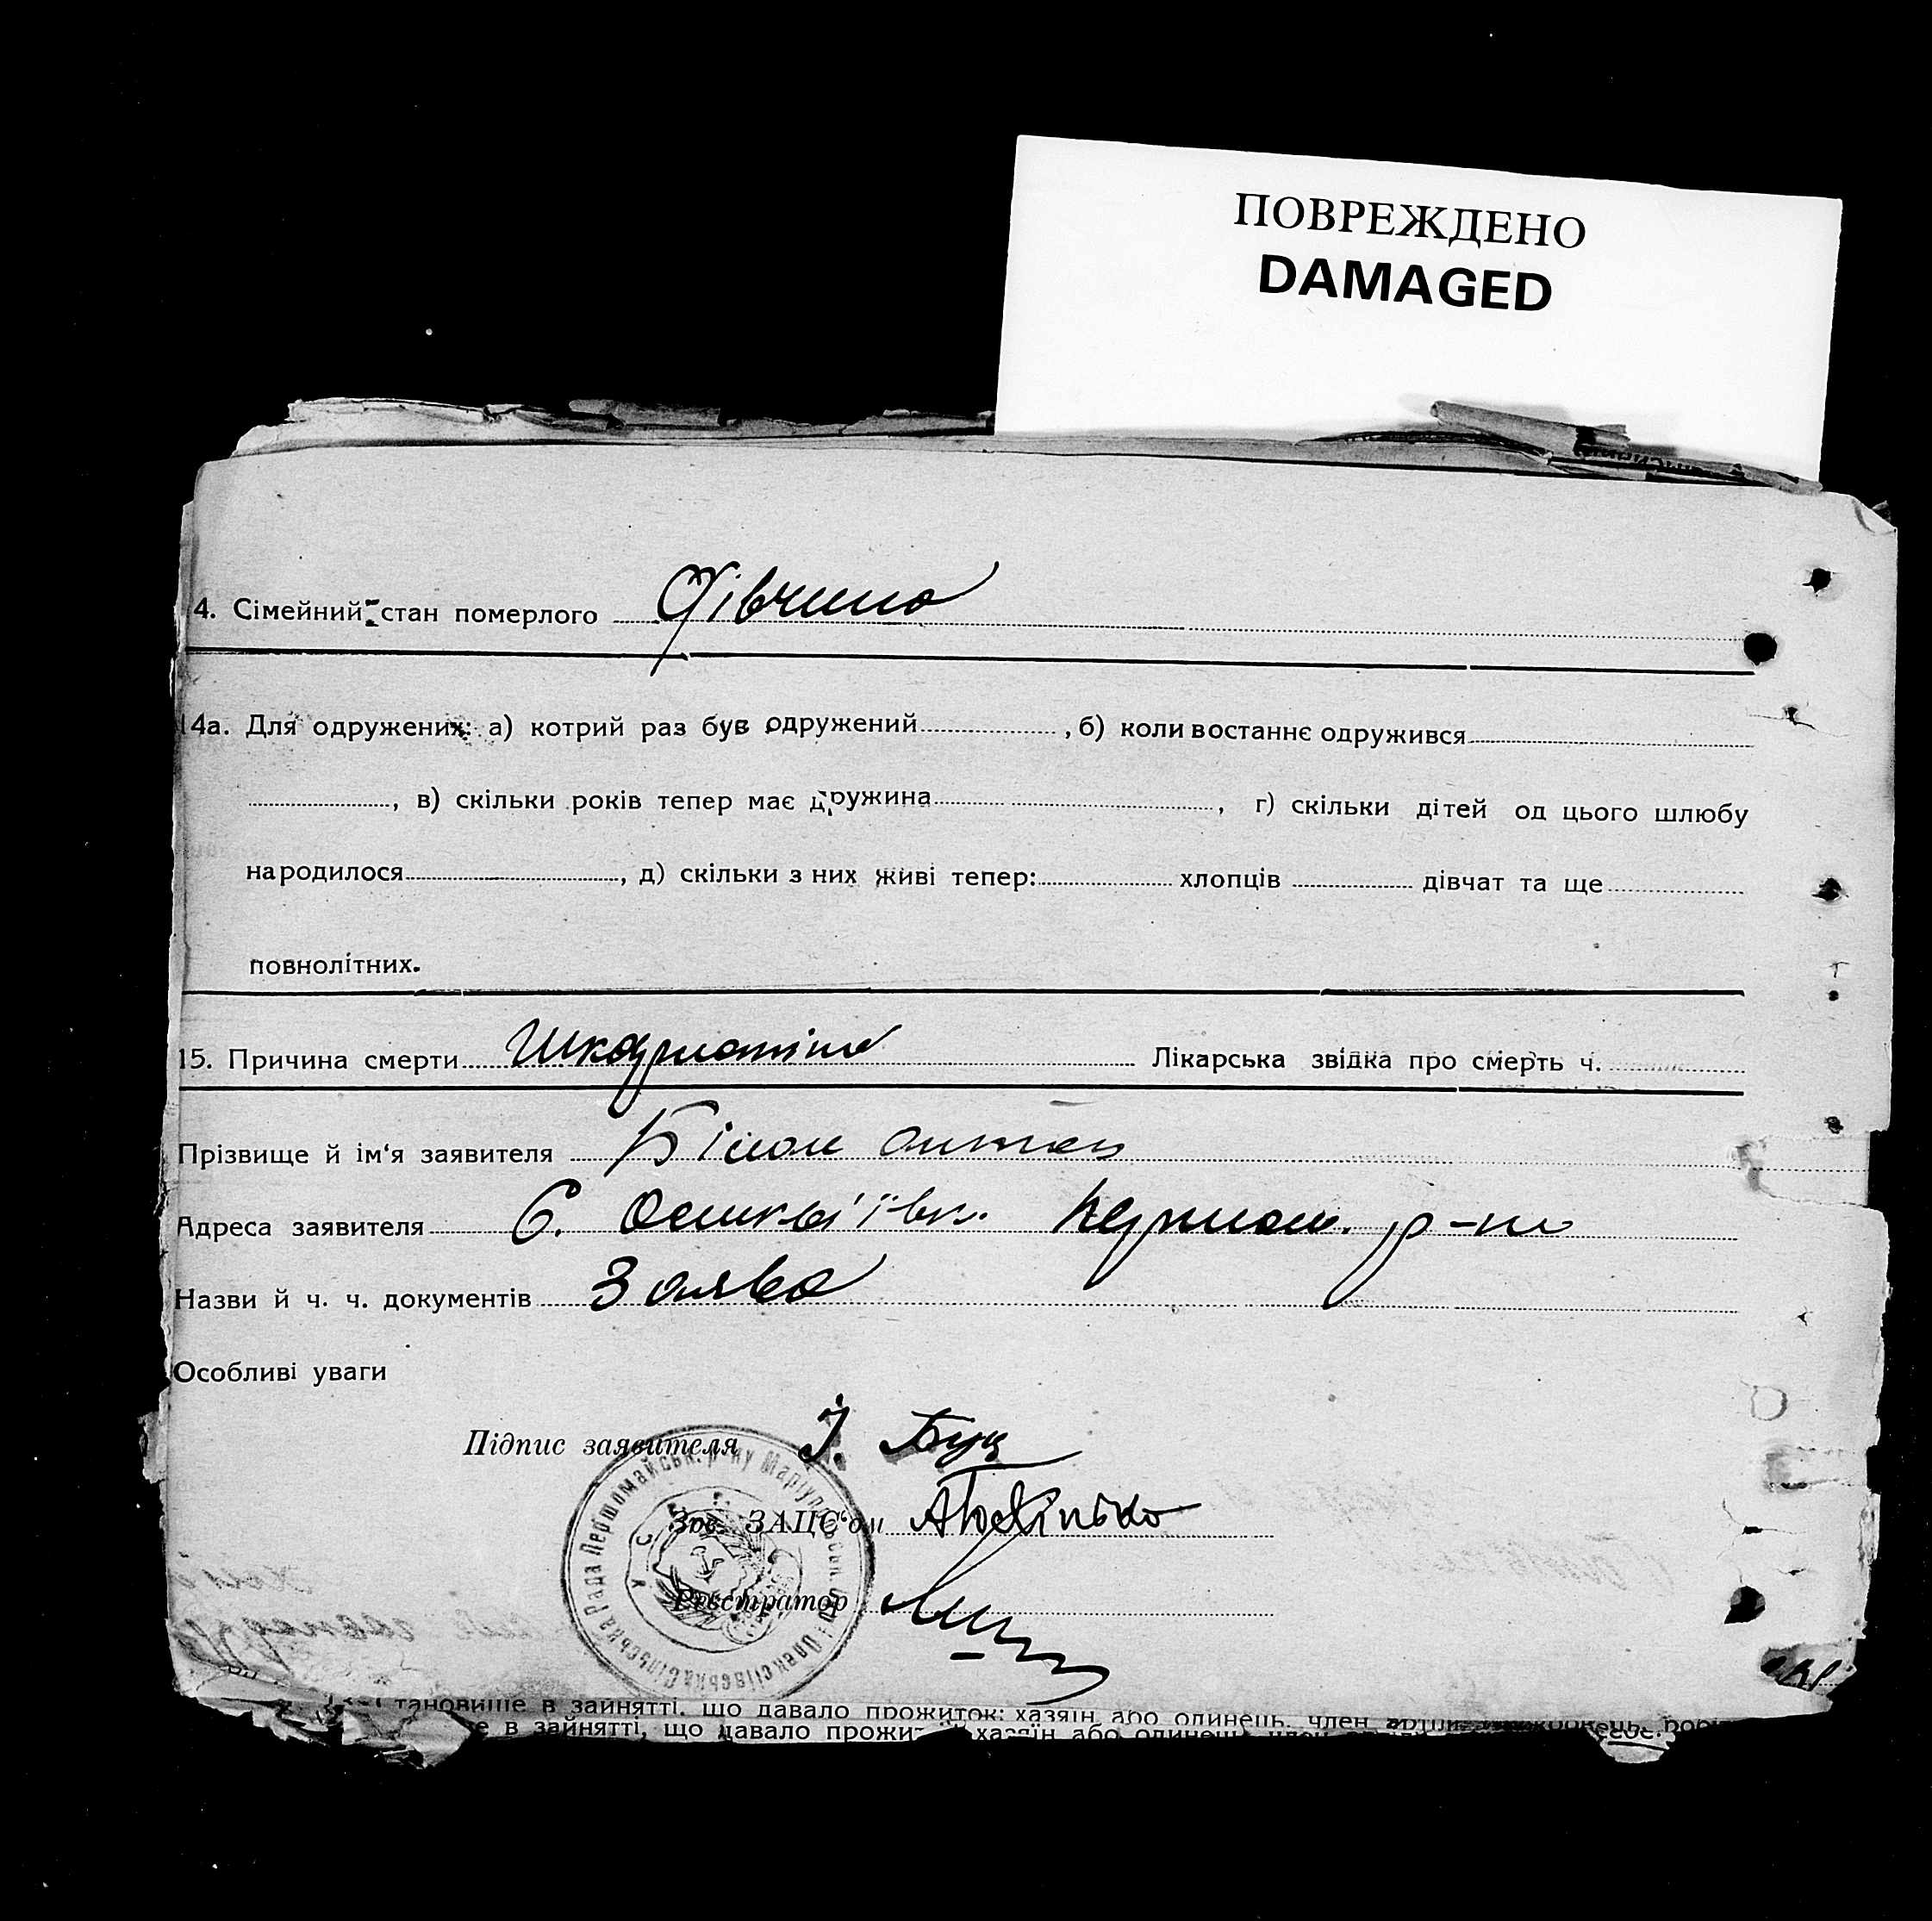 ПОВРЕЖДЕНО
DAMAGED
4. Сімейний стан померлого Дівчина
14а. Для одружених: а) котрий раз був одружений , б) коли востаннє одружився
, в) скільки років тепер має дружина , г) скільки дітей од цього шлюбу
народилося , д) скільки з них живі тепер: хлопців дівчат та ще
повнолітних.
15. Причина смерти Шкарлатіна Лікарська звідка про смерть ч.
Прізвище й ім‘я заявителя Антон
Адреса заявителя С. р-ну
Назви й ч. ч. документів Заява
Особливі уваги
Підпис заявителя І. Буц
Зав. ЗАЦС‘ом
Реєстратор
Сільська Рада Першомайськ. р-ну Маріупольськ
УС
тановище в зайнятті, що давало прожиток: хазяїн або одинець, член артіли
е в зайнятті, що давало хазяїн або одинець